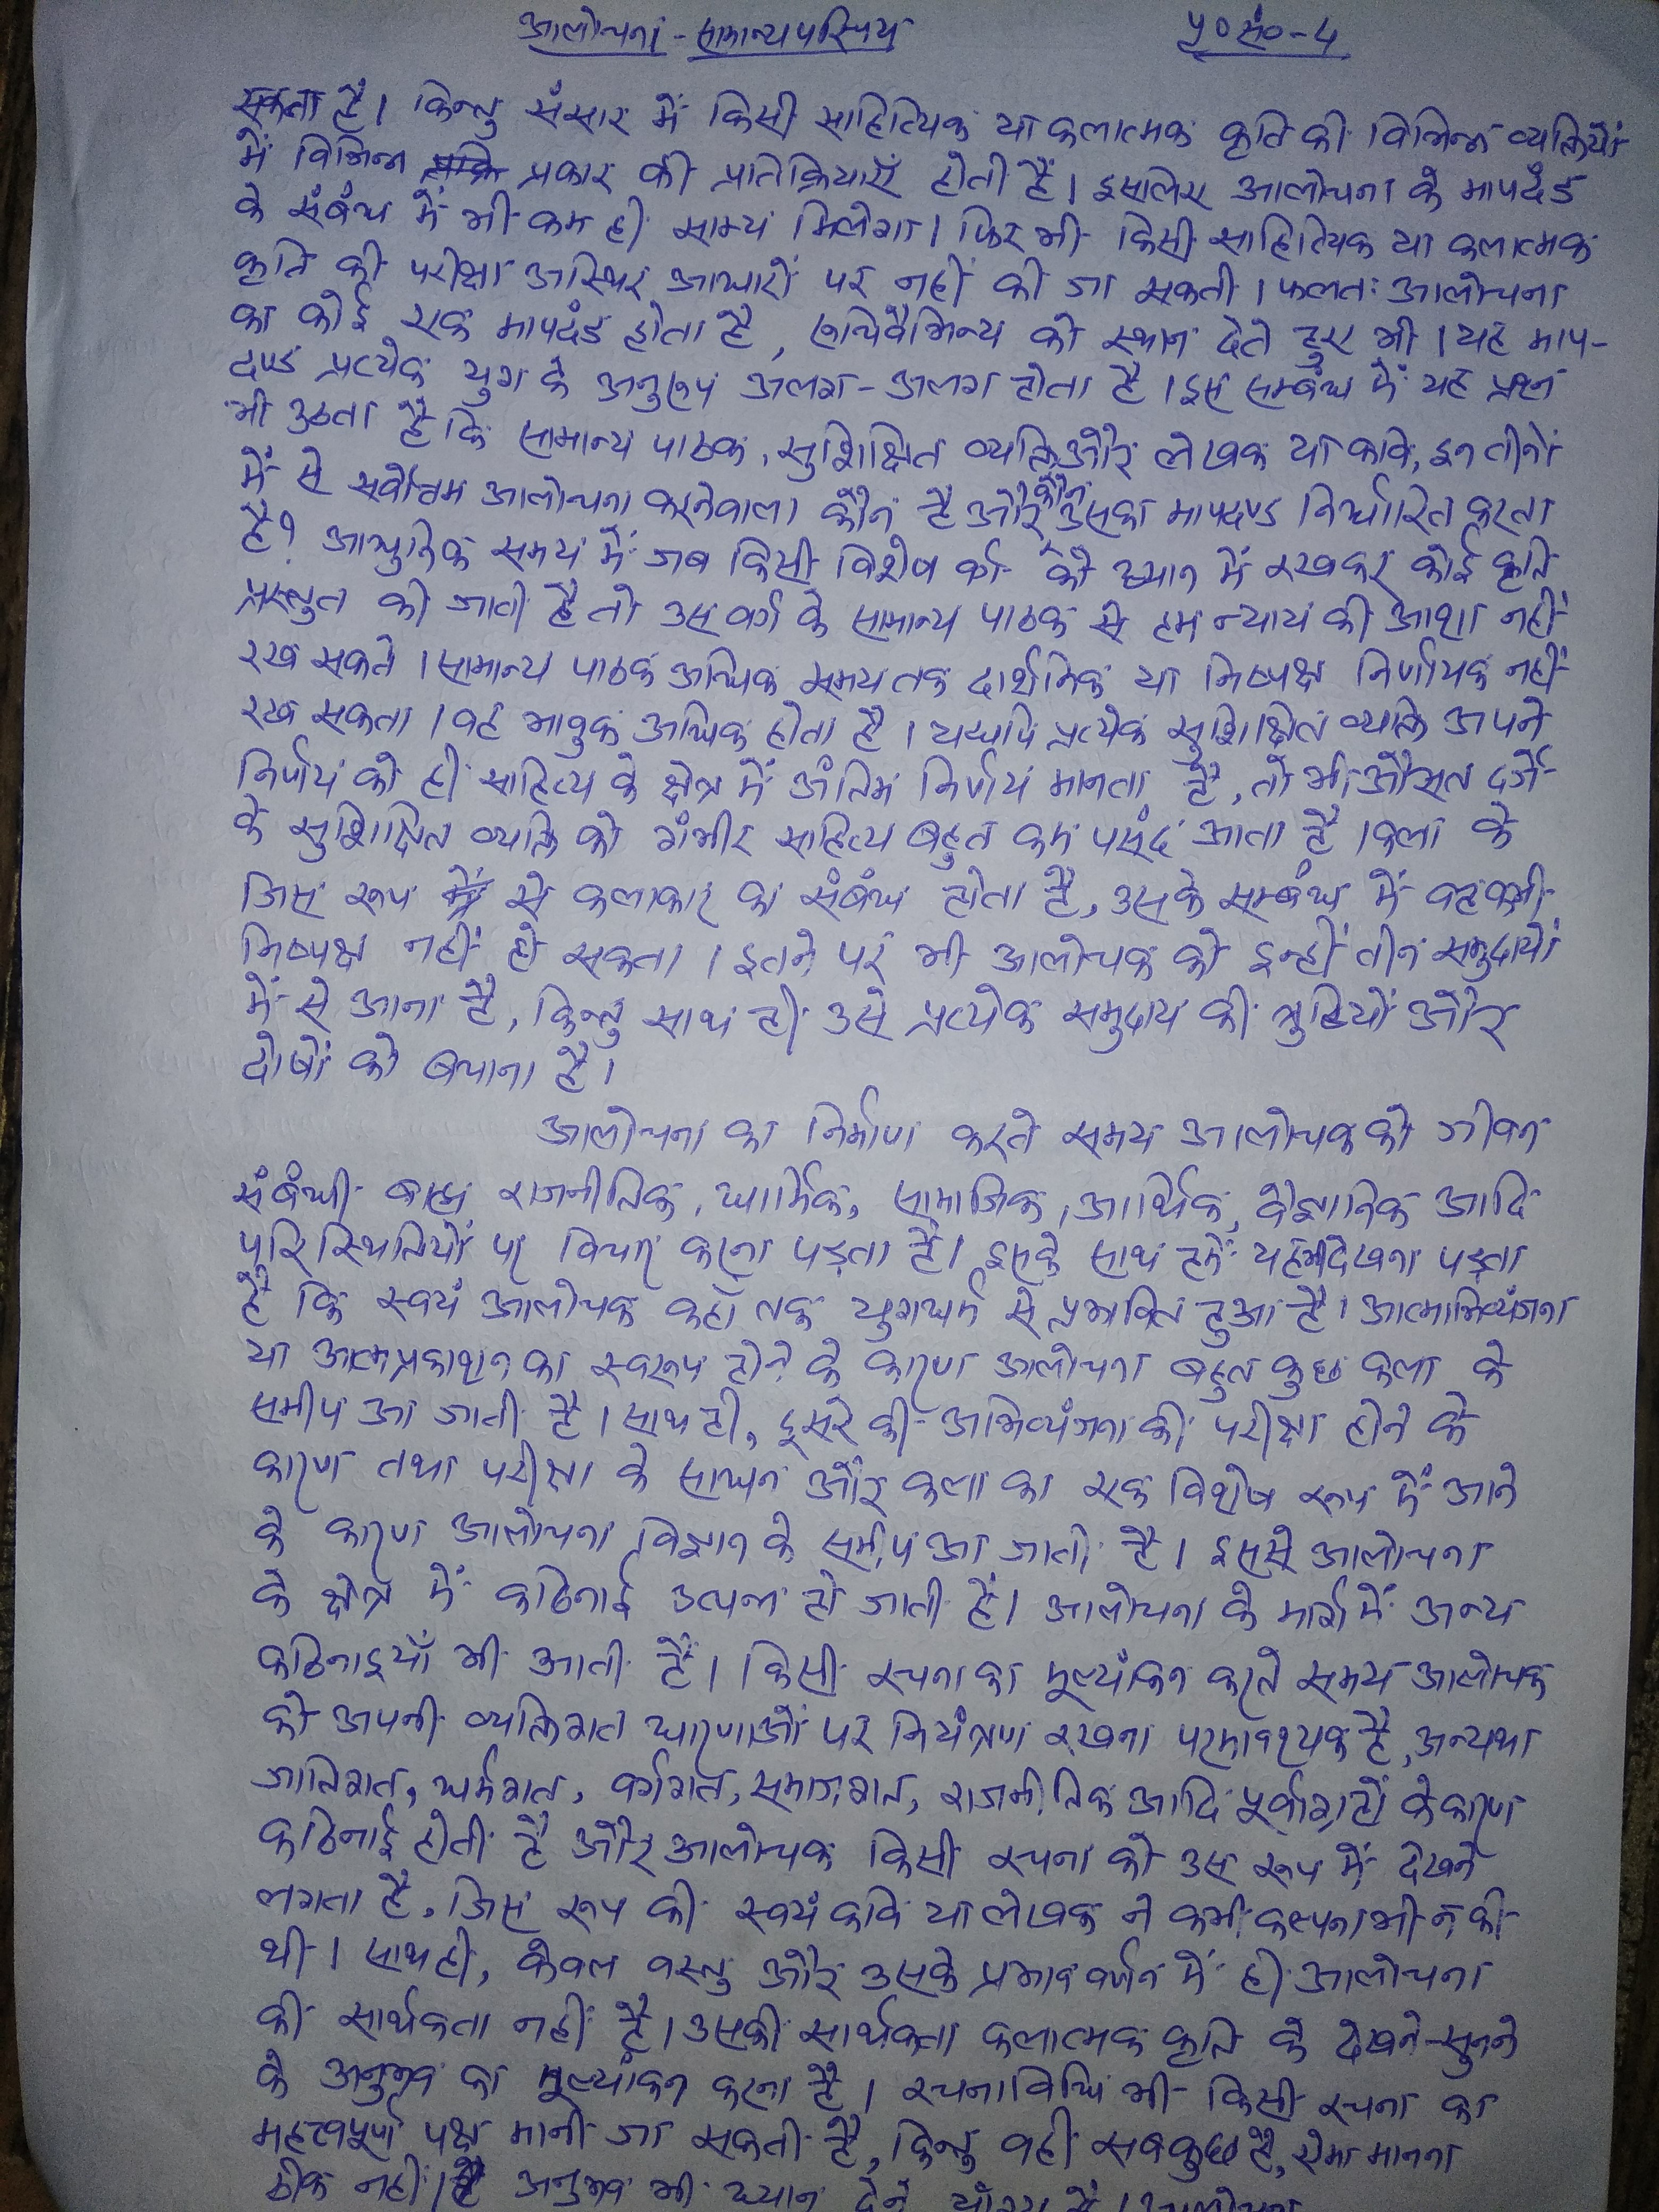 आलोचना - सामान्य परिचय पृ० सं०-4
सकता है। किन्तु संसार में किसी साहित्यिक या कलात्मक कृति की विभिन्न व्यक्तियों
में विभिन्न प्रकार की प्रतिक्रियाएँ होती हैं। इसलिए आलोचना के मापदंड
के संबंध में भी कम ही साम्य मिलेगा। फिर भी किसी साहित्यिक या कलात्मक
कृति की परीक्षा अस्थिर आधारों पर नहीं की जा सकती। फलतः आलोचना
का कोई एक मापदंड होता है, रुचिवैभिन्य को स्थान देते हुए भी। यह माप-
दण्ड प्रत्येक युग के अनुरूप अलग-अलग होता है। इस सम्बंध में यह प्रश्न
भी उठता है कि सामान्य पाठक, सुशिक्षित व्यक्ति और लेखक या कवि, इन तीनों
में से सर्वोत्तम आलोचना करनेवाला कौन है और कौन उसका मापदण्ड निर्धारित करता
है? आधुनिक समय में जब किसी विशेष वर्ग को ध्यान में रखकर कोई कृति
प्रस्तुत की जाती है तो उस वर्ग के सामान्य पाठक से हम न्याय की आशा नहीं
रख सकते। सामान्य पाठक अधिक समय तक दार्शनिक या निष्पक्ष निर्णायक नहीं
रख सकता। वह भावुक अधिक होता है। यद्यपि प्रत्येक सुशिक्षित व्यक्ति अपने
निर्णय को ही साहित्य के क्षेत्र में अंतिम निर्णय मानता है, तो भी औसत दर्जे
के सुशिक्षित व्यक्ति को गंभीर साहित्य बहुत कम पसंद आता है। कला के
जिस रूप से कलाकार का संबंध होता है, उसके सम्बंध में वह कभी
निष्पक्ष नहीं हो सकता। इतने पर भी आलोचक को इन्हीं तीन समुदायों
में से आना है, किन्तु साथ ही उसे प्रत्येक समुदाय की त्रुटियों और
दोषों को बचाना है।
आलोचना का निर्माण करते समय आलोचक को जीवन
संबंधी बाह्य राजनीतिक, धार्मिक, सामाजिक, आर्थिक, वैज्ञानिक आदि
परिस्थितियों पर विचार करना पड़ता है। इसके साथ हमें यह भी देखना पड़ता
है कि स्वयं आलोचक कहाँ तक युगधर्म से प्रभावित हुआ है। आत्माभिव्यंजना
या आत्मप्रकाशन का स्वरूप होने के कारण आलोचना बहुत कुछ कला के
समीप आ जाती है। साथ ही, दूसरे की अभिव्यंजना की परीक्षा होने के
कारण तथा परीक्षा के साधन और कला का एक विशेष रूप में आने
के कारण आलोचना विज्ञान के समीप आ जाती है। इससे आलोचना
के क्षेत्र में कठिनाई उत्पन्न हो जाती है। आलोचना के मार्ग में अन्य
कठिनाइयाँ भी आती हैं। किसी रचना का मूल्यांकन करते समय आलोचक
को अपनी व्यक्तिगत धारणाओं पर नियंत्रण रखना परमावश्यक है, अन्यथा
जातिगत, धर्मगत, वर्गगत, समाजगत, राजनीतिक आदि पूर्वाग्रहों के कारण
कठिनाई होती है और आलोचक किसी रचना को उस रूप में देखने
लगता है, जिस रूप की स्वयं कवि या लेखक ने कभी कल्पना भी न की
थी। साथ ही, केवल वस्तु और उसके प्रभाव वर्णन में ही आलोचना
की सार्थकता नहीं है। उसकी सार्थकता कलात्मक कृति के देखने-सुनने
के अनुभव का मूल्यांकन करना है। रचनाविधि भी किसी रचना का
महत्वपूर्ण पक्ष मानी जा सकती है, किन्तु वही सबकुछ है, ऐसा मानना
ठीक नहीं। अनुभव भी ध्यान देने योग्य है। आलोचना